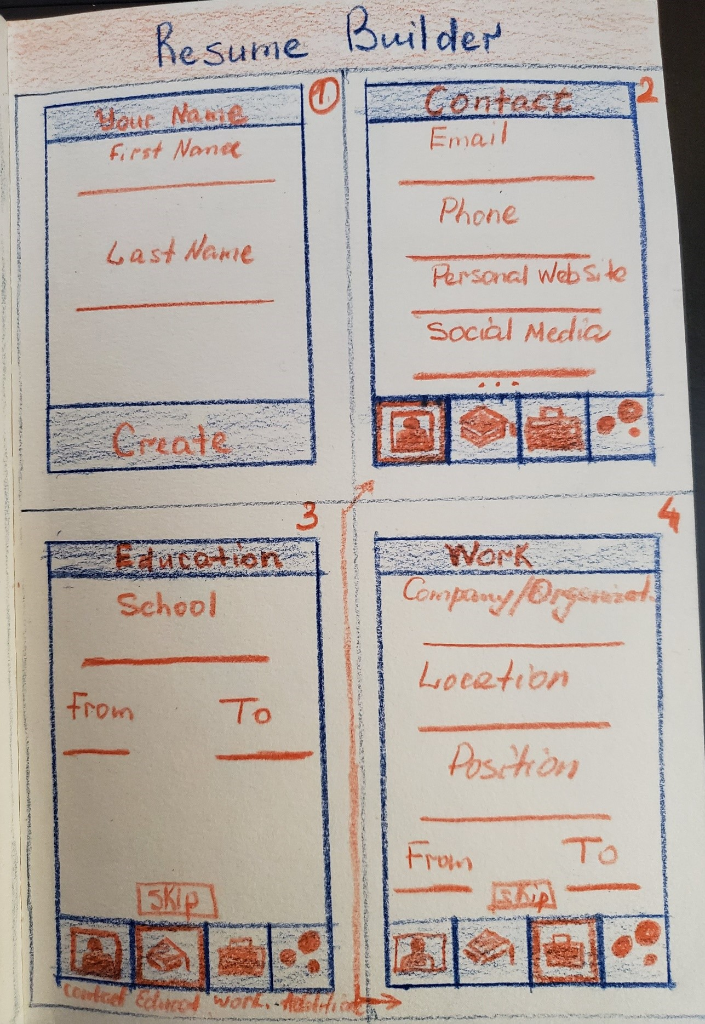 Resume Builder
1.
Your Name
First Name
Last Name
Create
2
Contact
Email
Phone
Personal Website
Social Media
...
3
Education
School
From To
Skip
contact Educat work. Additio
4
Work
Company/Organizat.
Location
Position
From To
Skip